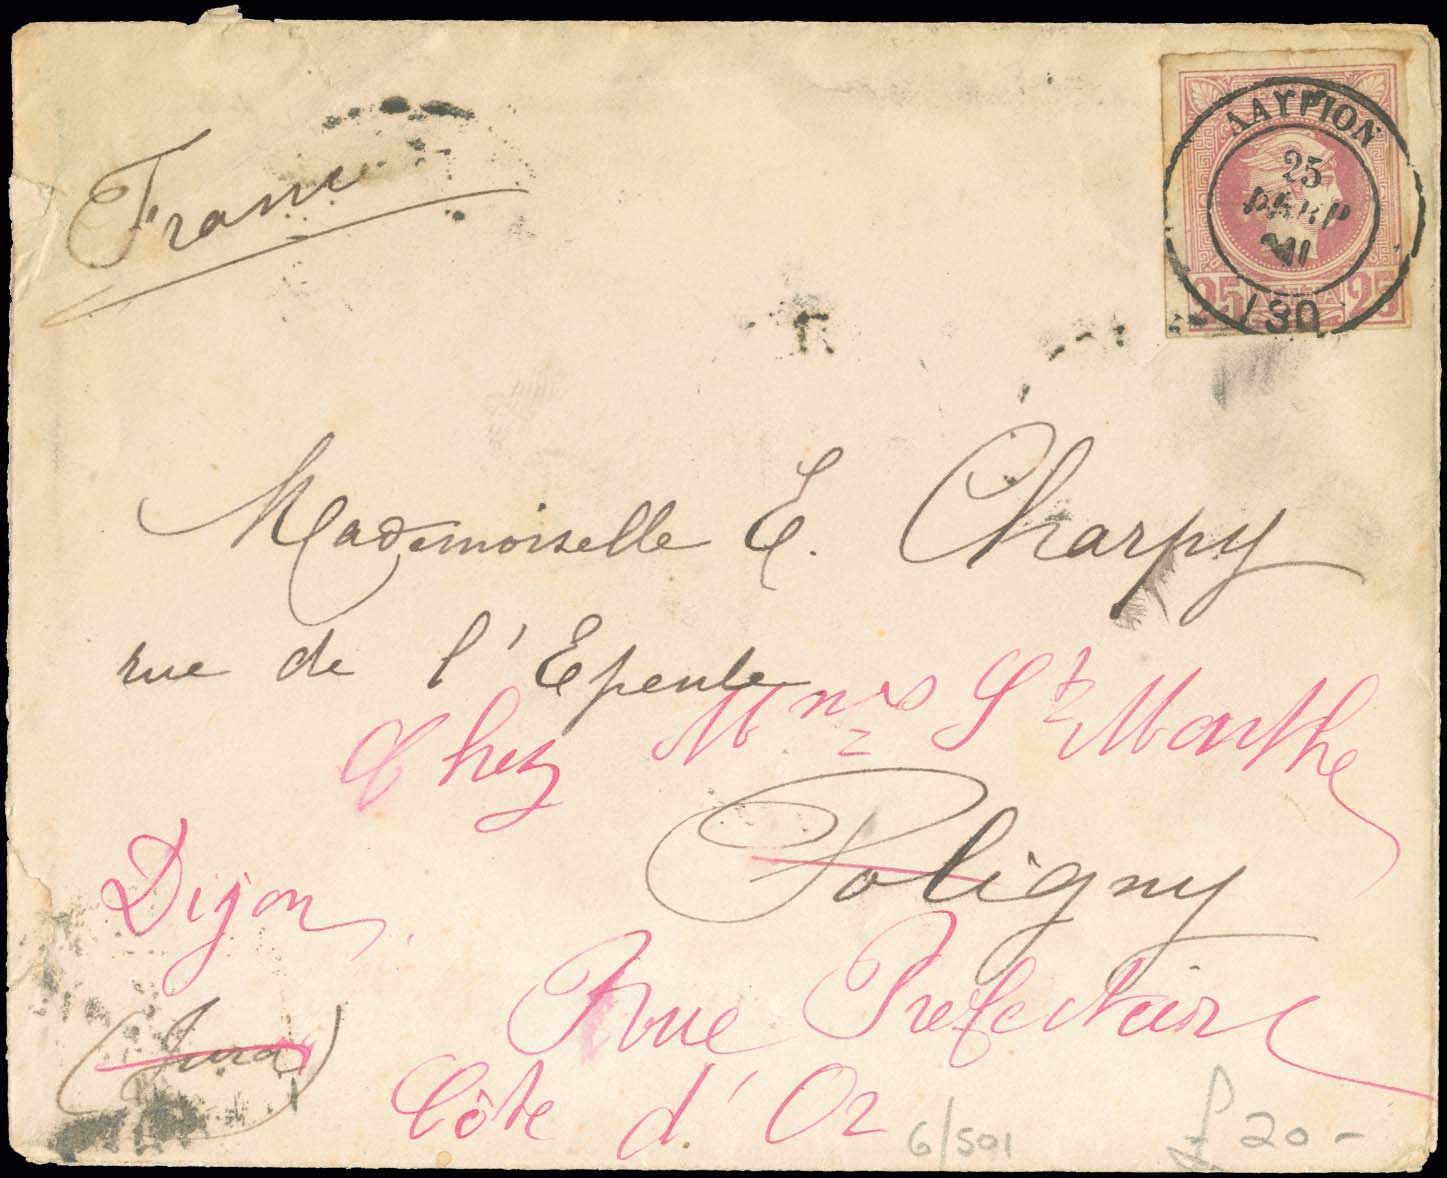 France
ΛΑΥΡΙΟΝ
25
130
25 ΛΕΠΤΑ 25
Mademoiselle E. Charpy
rue de l'Epeule
Chez Mmes Ste Marthe
Poligny
Dijon
Rue Prefecture
(Jura)
Côte d'Or
6/501
£20-